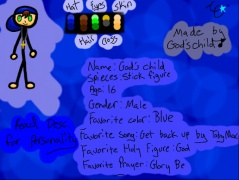 Hat Eyes skin
Hair cross
Made by
God'schild
Name: God's child
spieces: Stick figure
Age: 16
Gender: Male
Favorite color: Blue
Favorite Song: Get back up by TobyMac
Favorite Holy Figure: God
Favorite Prayer: Glory Be
Read Desc
for Personality